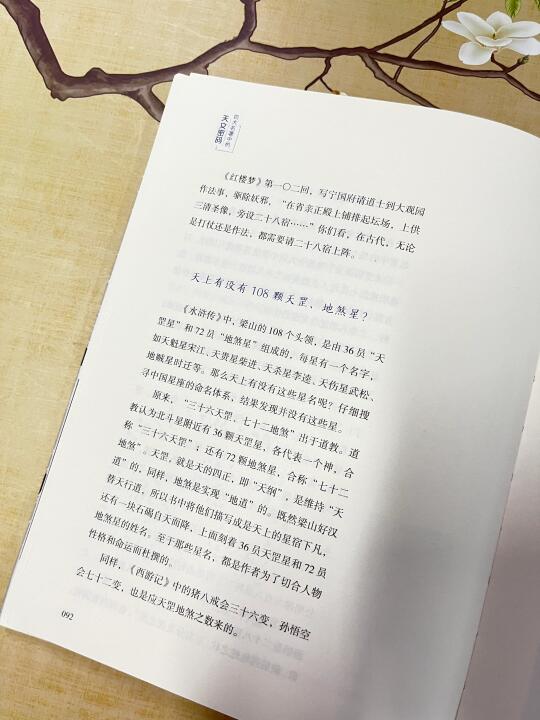 四大名著中的
天文密码
《红楼梦》第一〇二回，写宁国府请道士到大观园
作法事，驱除妖邪，“在省亲正殿上铺排起坛场，上供
三清圣像，旁设二十八宿……”你们看，在古代，无论
是打仗还是作法，都需要请二十八宿上阵。
天上有没有108颗天罡、地煞星？
《水浒传》中，梁山的108个头领，是由36员“天
罡星”和72员“地煞星”组成的，每星有一个名字，
如天魁星宋江、天贵星柴进、天杀星李逵、天伤星武松、
地贼星时迁等。那么天上有没有这些星名呢？仔细搜
寻中国星座的命名体系，结果发现并没有这些星。
原来，“三十六天罡、七十二地煞”出于道教。道
教认为北斗星附近有36颗天罡星，各代表一个神，合
称“三十六天罡”；还有72颗地煞星，合称“七十二
地煞”。天罡，就是天的四正，即“天纲”，是维持“天
道”的，同样，地煞是实现“地道”的。既然梁山好汉
替天行道，所以书中将他们描写成是天上的星宿下凡，
还有一块石碣自天而降，上面刻着36员天罡星和72员
地煞星的姓名。至于那些星名，都是作者为了切合人物
性格和命运而杜撰的。
同样，《西游记》中的猪八戒会三十六变，孙悟空
会七十二变，也是应天罡地煞之数来的。
092